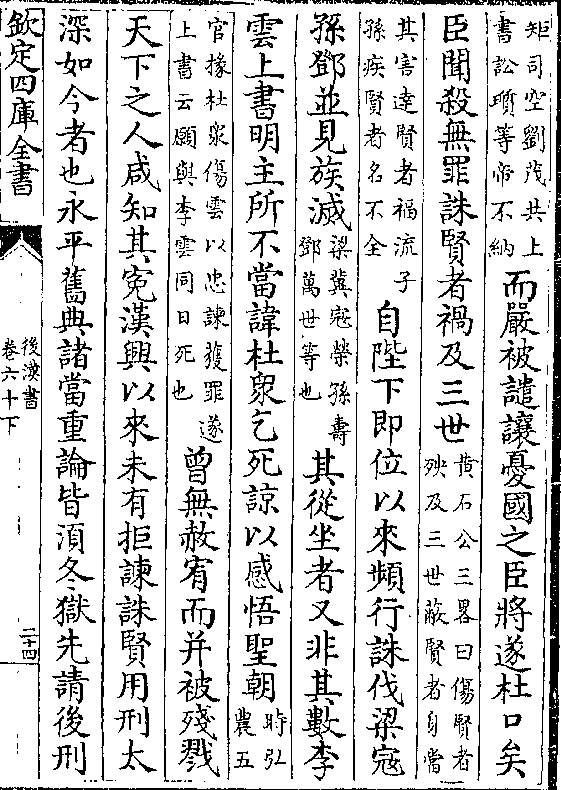 矩司空劉茂共上
書訟瓆等帝不納
而嚴被譴讓憂國之臣將遂杜口矣
臣聞殺無罪誅賢者禍及三世
黄石公三畧曰傷賢者
殃及三世蔽賢者自當
其害達賢者福流子
孫疾賢者名不全
自陛下即位以來頻行誅伐梁寇
孫鄧並見族滅
梁冀宼榮孫壽
鄧萬世等也
其從坐者又非其數李
雲上書明主所不當諱杜衆乞死諒以感悟聖朝
時弘
農五
官掾杜衆傷雲以忠諫獲罪遂
上書云願與李雲同日死也
曾無赦宥而并被殘戮
天下之人咸知其寃漢興以來未有拒諫誅賢用刑太
深如今者也永平舊典諸當重論皆須冬獄先請後刑
欽定四庫全書
後漢書
卷六十下
二十四